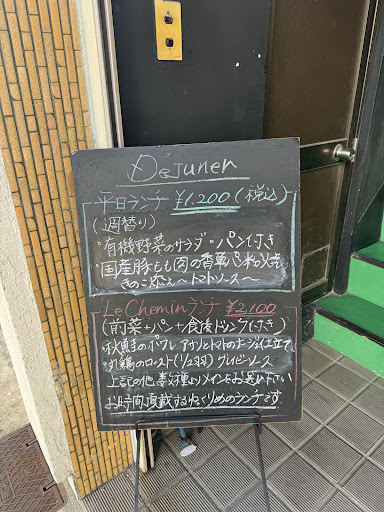 Déjuner
平日ランチ ¥1,200(税込)
(週替り)
・有機野菜のサラダ・パン付き
・国産豚もも肉の香草パン粉焼き
きのこ添え〜トマトソース〜
Le Cheminランチ ¥2,100
(前菜+パン+食後ドリンク付き)
・秋鮭のポワレ アサリとトマトのナージュ仕立て
・丸鶏のロースト(1/2羽)グレイビーソース
上記の他数種よりメインをお選び下さい
お時間頂戴するゆっくりめのランチです